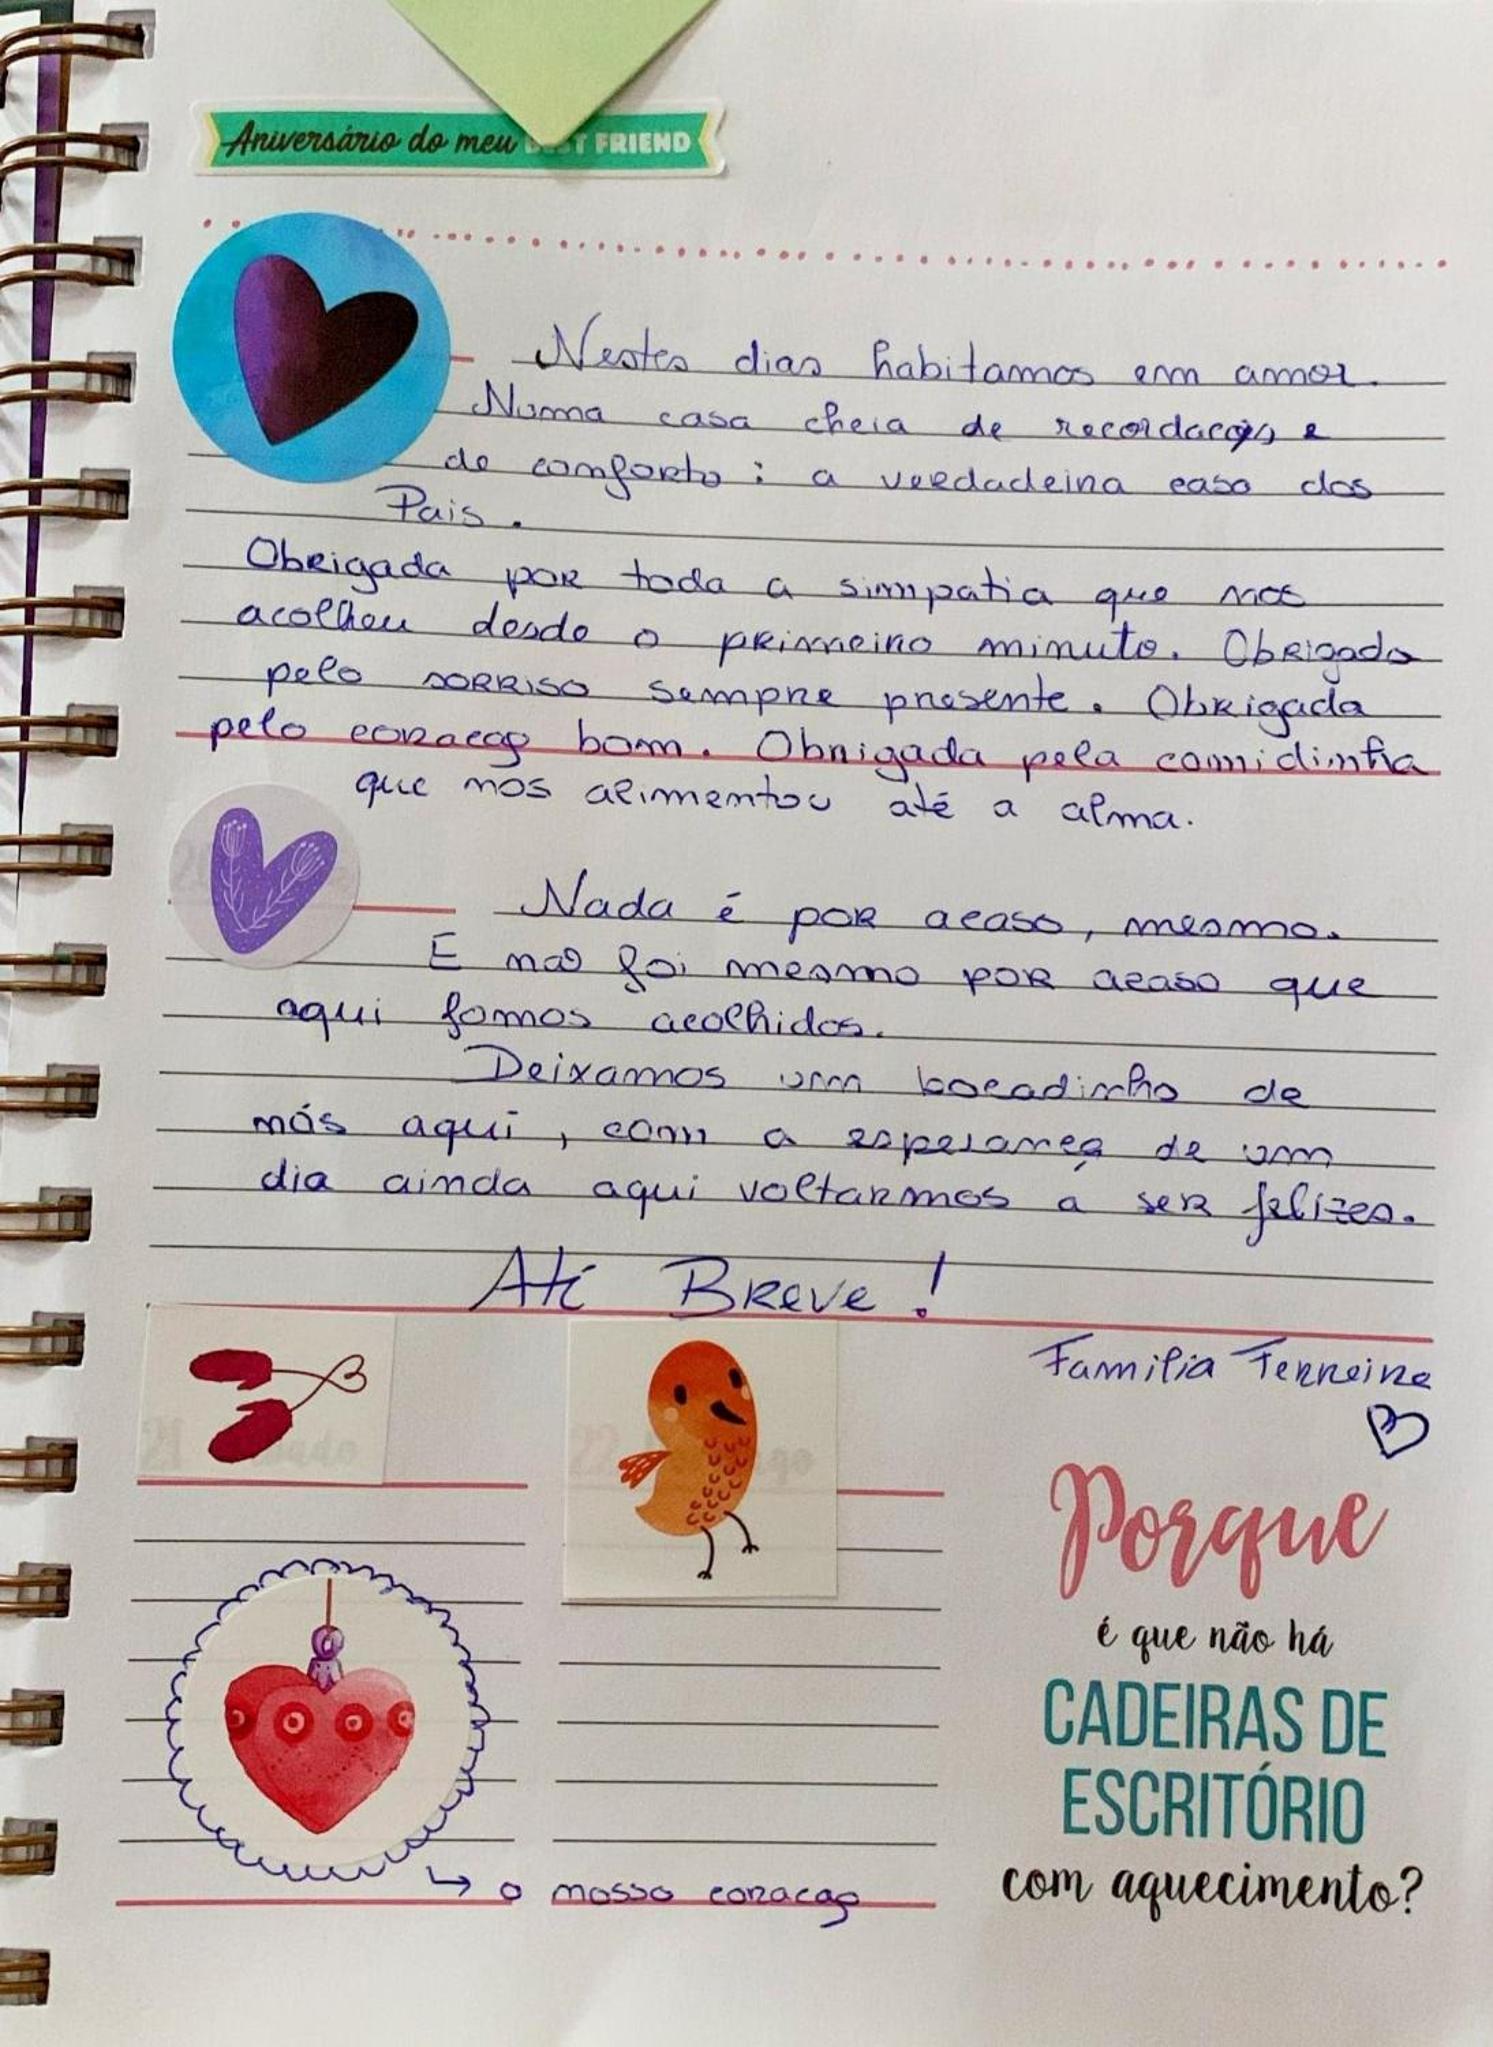 Aniversário do meu BEST FRIEND
Nestes dias habitamos em amor.
Numa casa cheia de recordações e
de conforto: a verdadeira casa dos
Pais.
Obrigada por toda a simpatia que nos
acolheu desde o primeiro minuto. Obrigada
pelo sorriso sempre presente. Obrigada
pelo coração bom. Obrigada pela comidinha
que nos alimentou até a alma.
Nada é por acaso, mesmo.
E não foi mesmo por acaso que
aqui fomos acolhidos.
Deixamos um bocadinho de
nós aqui, com a esperança de um
dia ainda aqui voltarmos a ser felizes.
Até Breve!
Família Ferreira
21 Sábado
22
Porque
é que não há
CADEIRAS DE
ESCRITÓRIO
com aquecimento?
↳ o nosso coração